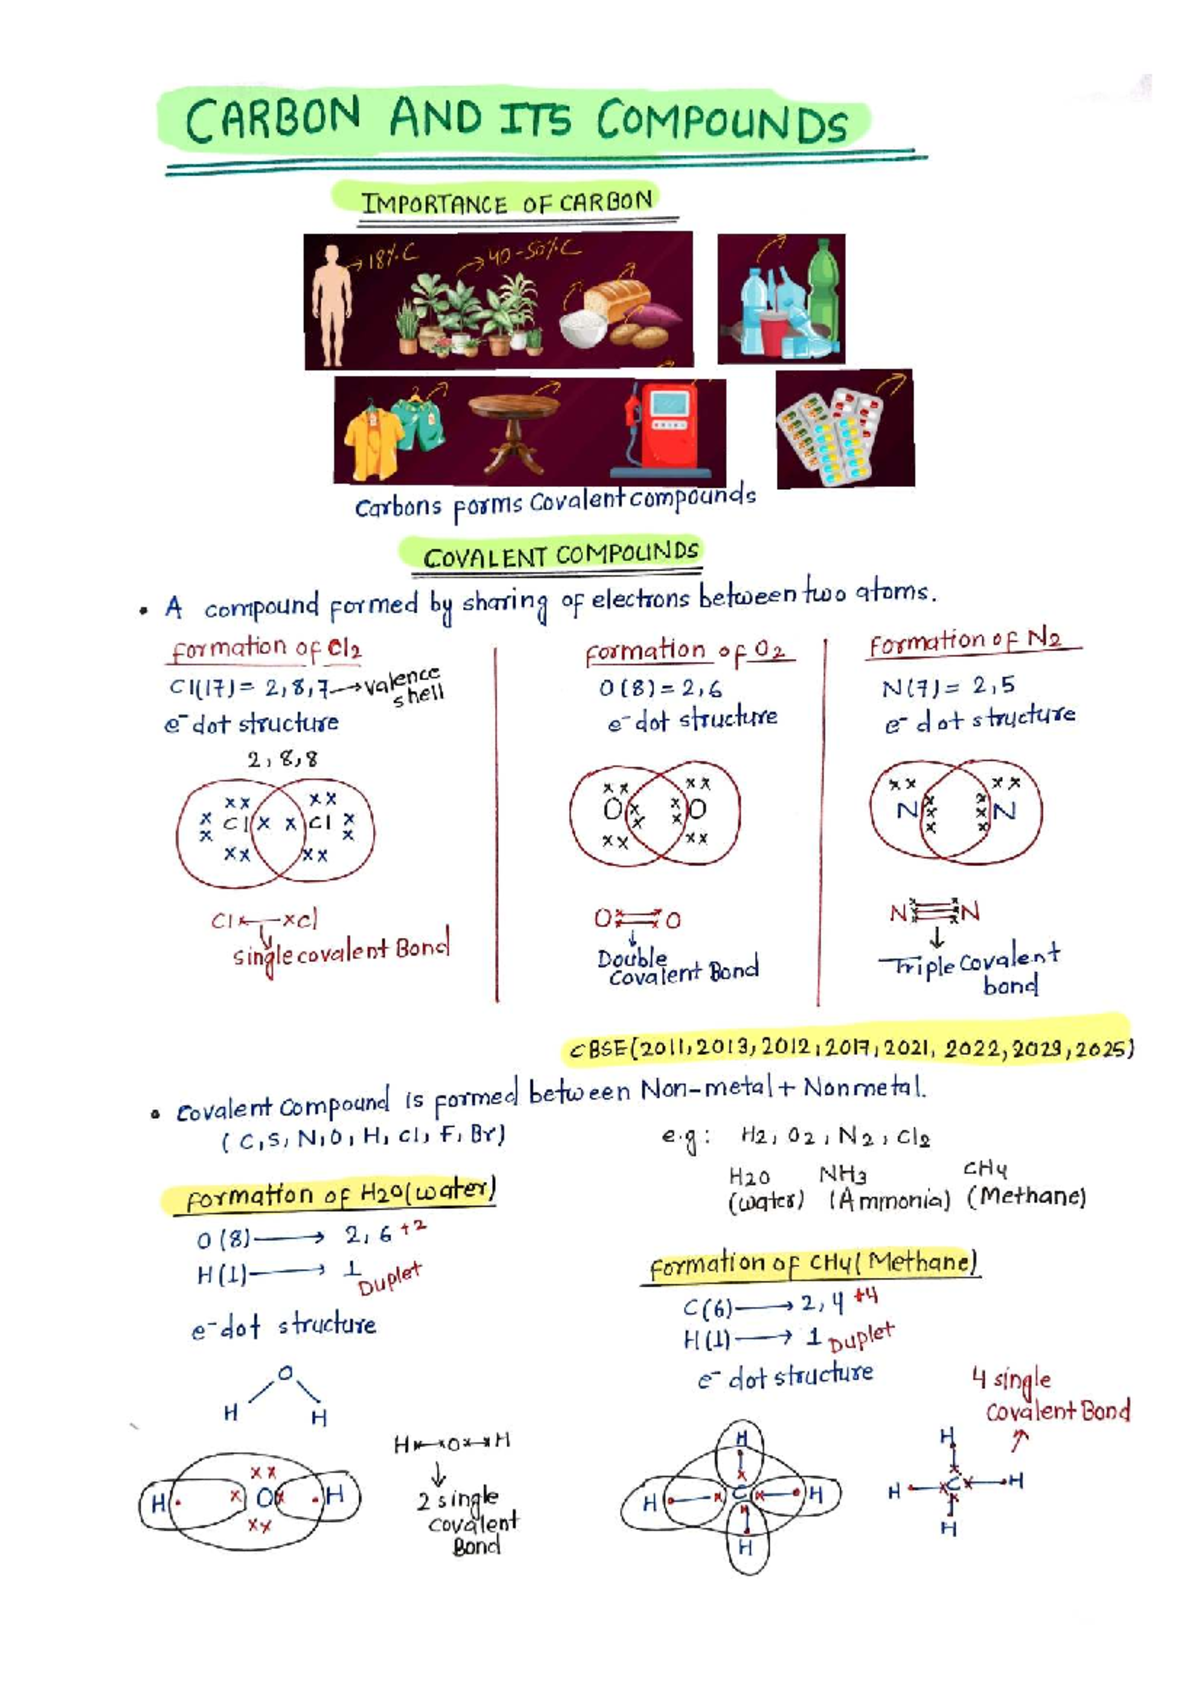 CARBON AND ITS COMPOUNDS
IMPORTANCE OF CARBON
18%C
40-50%C
Carbons forms Covalent compounds
COVALENT COMPOUNDS
• A compound formed by sharing of electrons between two atoms.
Formation of Cl2
Cl(17) = 2,8,7 → valence shell
e- dot structure
2,8,8
xx xx
x Cl x x Cl x
x x
xx xx
Cl x x Cl
Single covalent Bond
Formation of O2
O(8) = 2,6
e- dot structure
xx xx
O x x O
x x
xx xx
O x x O
Double
Covalent Bond
Formation of N2
N(7) = 2,5
e- dot structure
xx xx
N x x N
x x
x x
N≡N
Triple Covalent
bond
CBSE(2011,2013,2012,2017,2021,2022,2023,2025)
• Covalent Compound is formed between Non-metal + Nonmetal.
(C,S,N,O,H,Cl,F,Br)
e.g: H2, O2, N2, Cl2
H2O NH3 CH4
(water) (Ammonia) (Methane)
Formation of H2O(water)
O(8) → 2,6 +2
H(1) → 1 Duplet
e- dot structure
O
H H
H x O x H
2 single
covalent
Bond
xx
H • x O x • H
xx
Formation of CH4(Methane)
C(6) → 2,4 +4
H(1) → 1 Duplet
e- dot structure
4 single
Covalent Bond
H
H C H
H
H
H C H
H